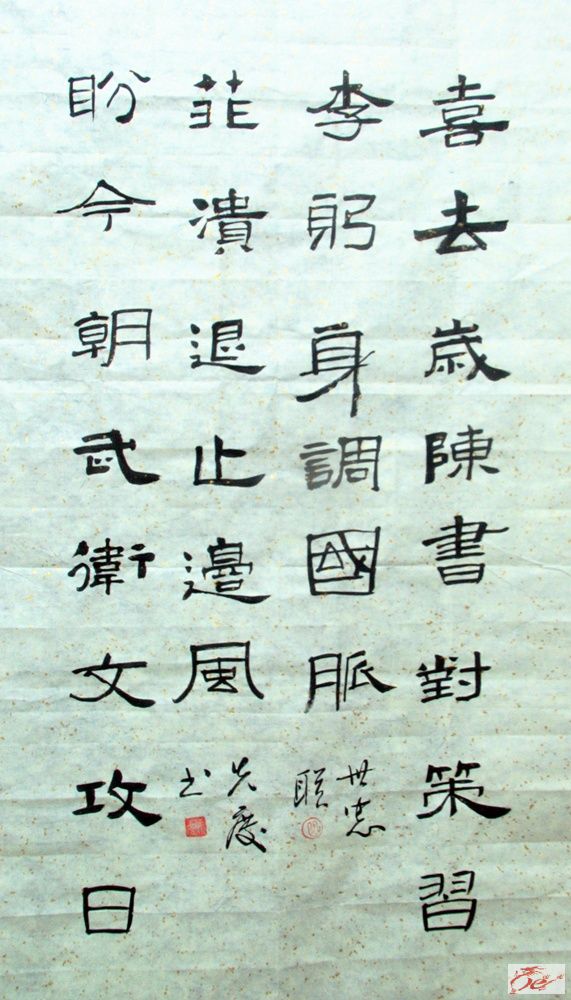 喜去歲陳書對策習
李躬身調國脈
世忠
聯
盼今朝武衛文攻日
菲潰退止邊風
书